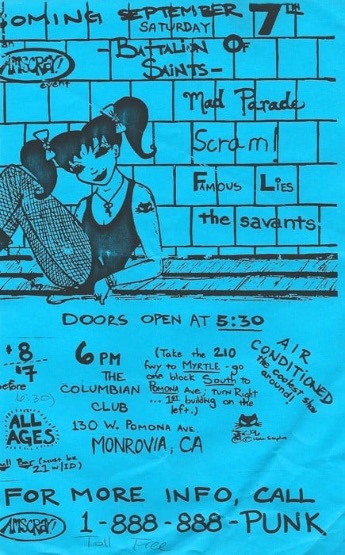 OMING SEPTEMBER 7TH
SATURDAY
an
AMSCRAY!
event
- BATTALION OF
SAINTS -
Mad Parade
Scram!
FAMOUS LIES
the savants!
DOORS OPEN AT 5:30
$8
$7
before
6:30)
6 PM
THE
COLUMBIAN
CLUB
(Take the 210
fwy to MYRTLE - go
one block South to
POMONA AVE; turn Right
... 1ST building on the
left.)
AIR
CONDITIONED
the coolest show
around!
ALL
AGES
130 W. POMONA AVE.
MONROVIA, CA
ull Bar (must be
21 w/ID)
FOR MORE INFO, CALL
AMSCRAY! 1-888-888-PUNK
Toll Free